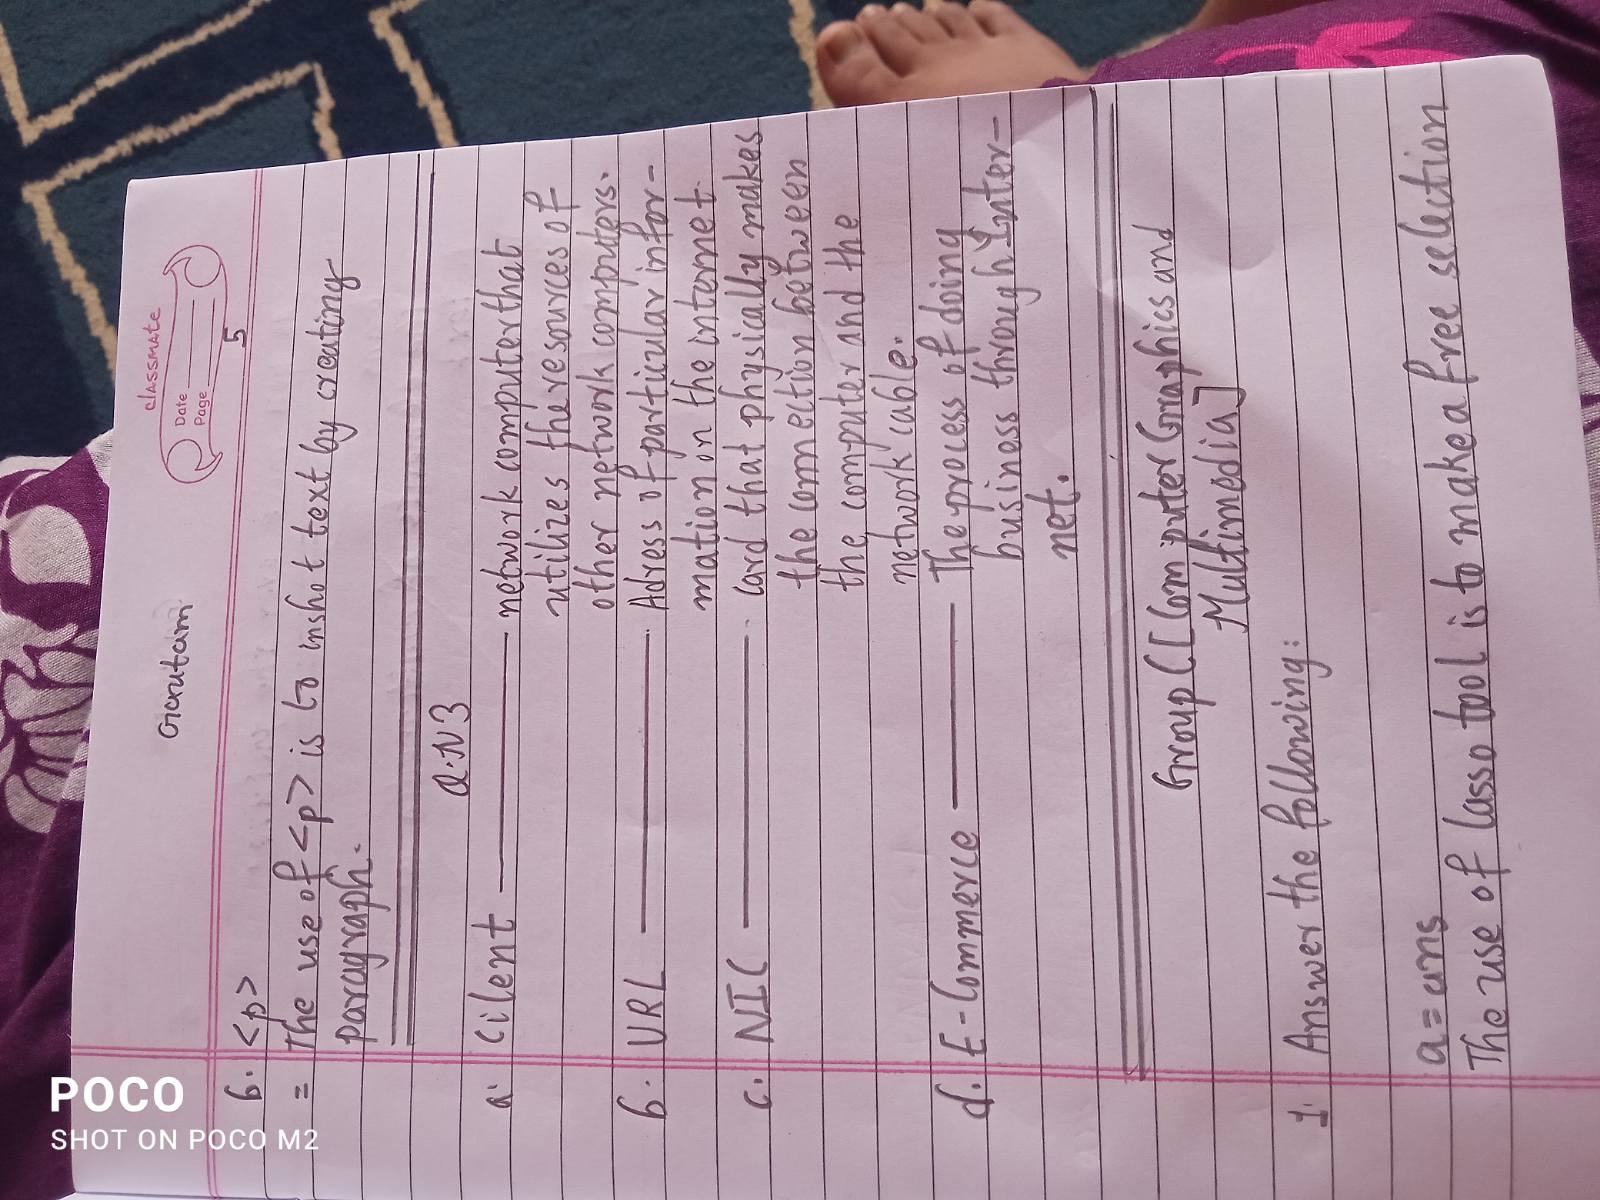 Gautam
classmate
Date
Page
5
b. <p>
= The use of <p> is to inshot text by creating
paragraph.
Q.N3
a. Cilent — network computer that
utilizes the resources of
other network computers.
b. URL — Adress of particular infor-
mation on the internet.
c. NIC — card that physically makes
the connection between
the computer and the
network cable.
d. E-Commerce — The process of doing
business through Inter-
net.
Group C [Computer Graphics and
Multimedia]
1. Answer the following:
a = ans
The use of lasso tool is to make a free selection
POCO
SHOT ON POCO M2